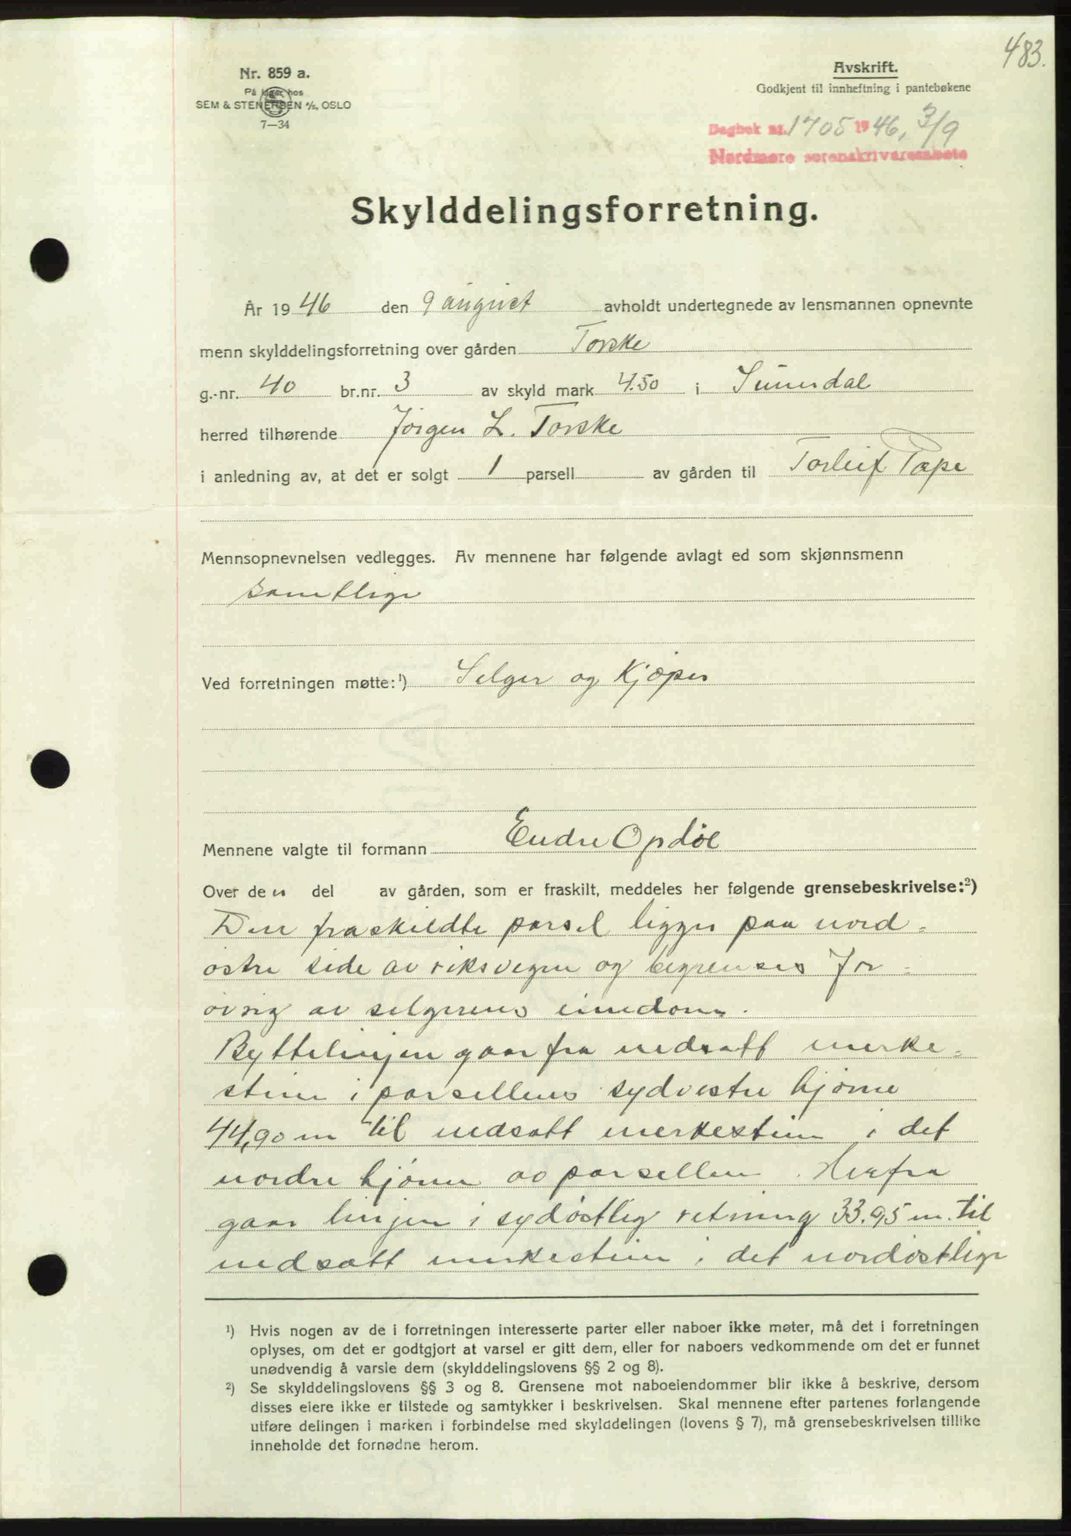 483.
Nr. 859 a.
På lager hos
SEM & STENERSEN A/S, OSLO
7—34
Avskrift.
Godkjent til innheftning i pantebøkene
Dagbok nr. 1705 1946, 3/9
Nordmøre sorenskriverembete
Skylddelingsforretning.
År 1946 den 9 august avholdt undertegnede av lensmannen opnevnte
menn skylddelingsforretning over gården Torske
g.-nr. 40 br.nr. 3 av skyld mark 4.50 i Sunndal
herred tilhørende Jørgen L. Torske
i anledning av, at det er solgt 1 parsell av gården til Torleif Pape
Mennsopnevnelsen vedlegges. Av mennene har følgende avlagt ed som skjønnsmenn
samtlige
Ved forretningen møtte:¹) Selger og Kjøper
Mennene valgte til formann Endre Opdøl
Over den del av gården, som er fraskilt, meddeles her følgende grensebeskrivelse:²)
Den fraskildte parsel ligger paa nord=
østre side av riksvegen og begrenses for=
øvrig av selgerens eiendom.
Byttelinjen gaar fra nedsatt merke=
sten i parsellens sydvestre hjørne
44,90 m til nedsatt merkesten i det
nordre hjørne av parsellen. Herfra
gaar linjen i sydøstlig retning 33.95 m. til
nedsatt merkesten i det nordøstlige
¹) Hvis nogen av de i forretningen interesserte parter eller naboer ikke møter, må det i forretningen
oplyses, om det er godtgjort at varsel er gitt dem, eller for naboers vedkommende om det er funnet
unødvendig å varsle dem (skylddelingslovens §§ 2 og 8).
²) Se skylddelingslovens §§ 3 og 8. Grensene mot naboeiendommer blir ikke å beskrive, dersom
disses eiere ikke er tilstede og samtykker i beskrivelsen. Skal mennene efter partenes forlangende
utføre delingen i marken i forbindelse med skylddelingen (lovens § 7), må grensebeskrivelsen tillike
inneholde det fornødne herom.